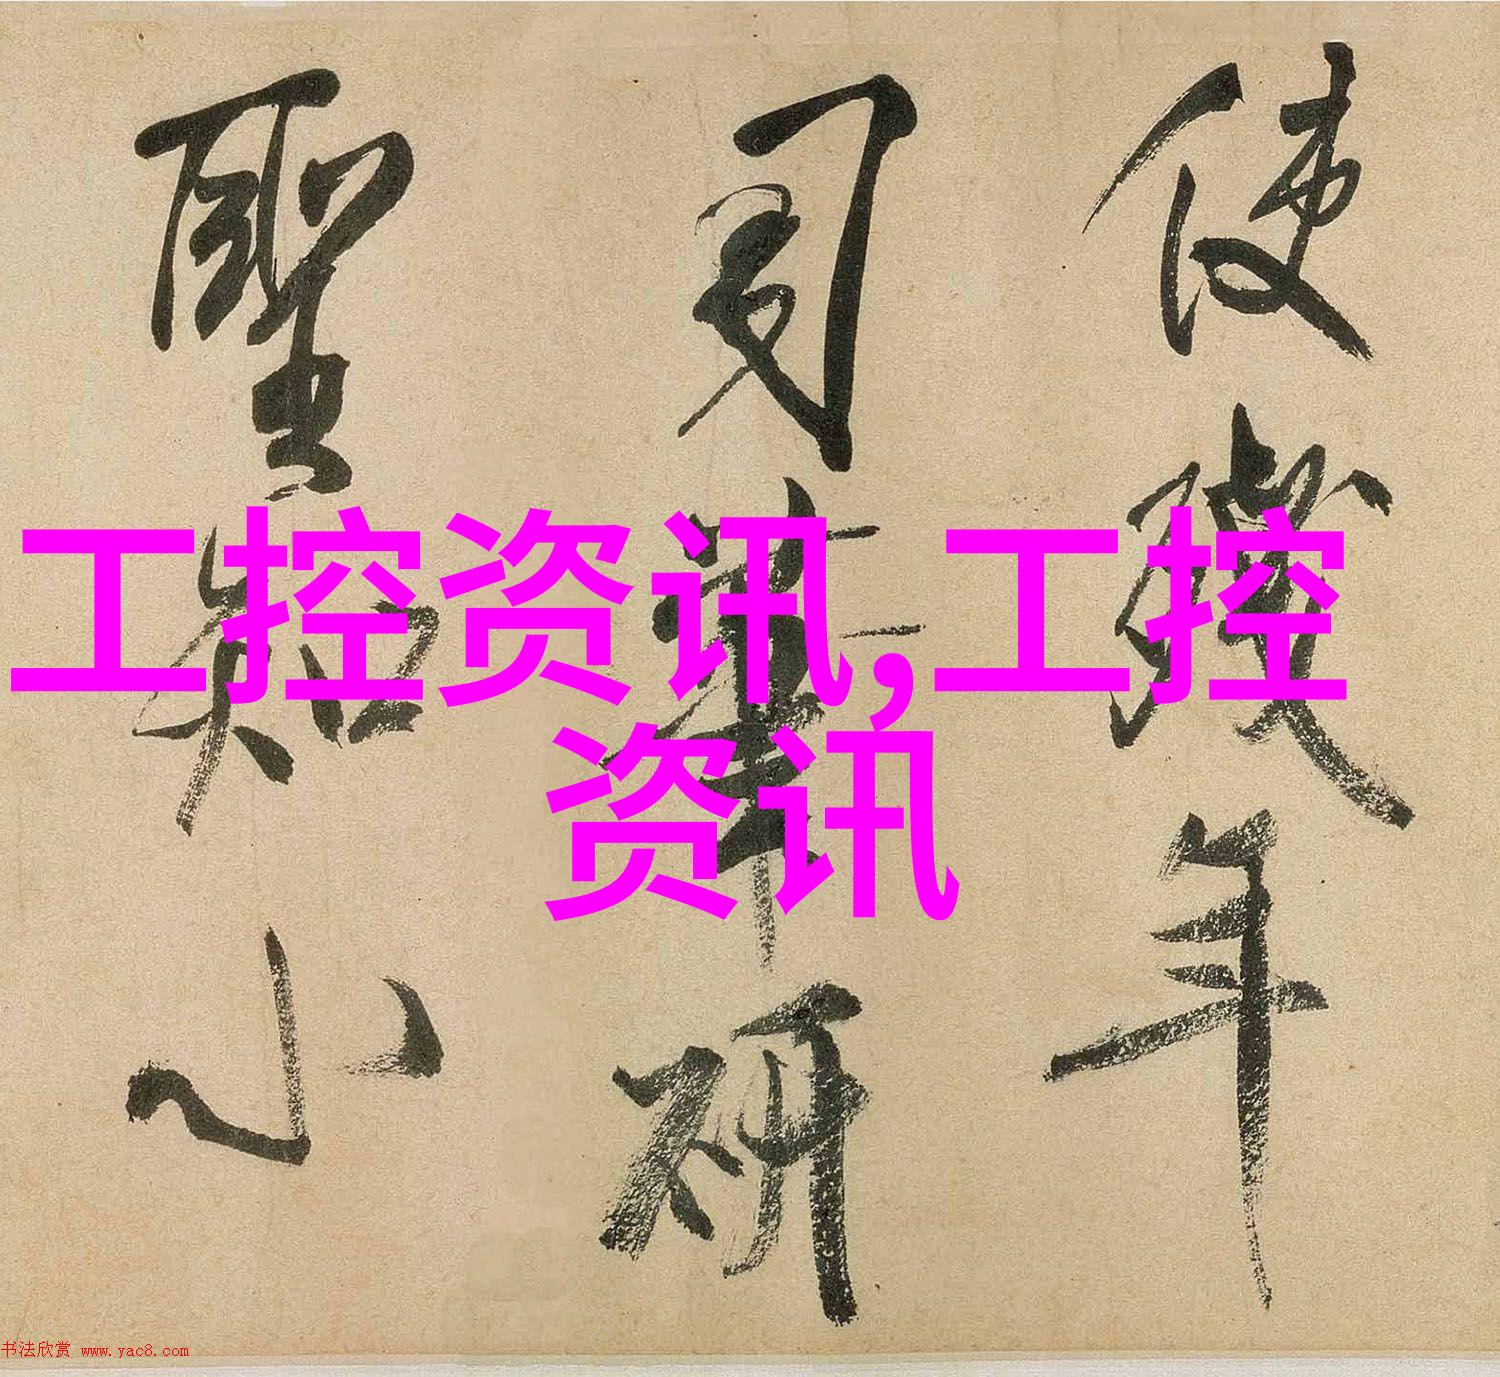 使残年
司笔研
圣知小
工控资讯,工控
资讯
书法欣赏 www.yac8.com